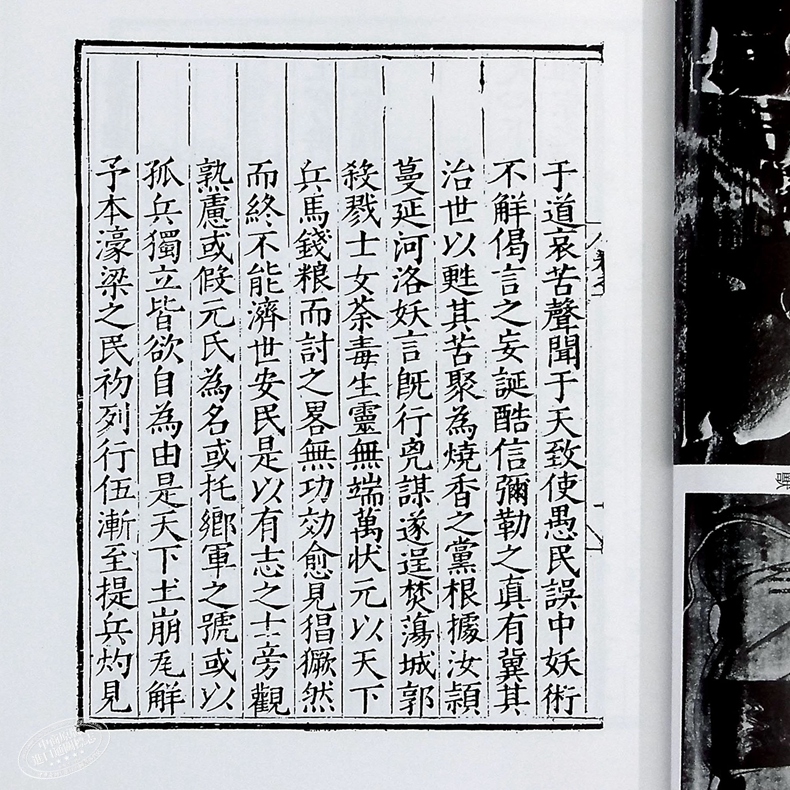 于道哀苦聲聞于天致使愚民誤中妖術
不觧偈言之妄誕酷信彌勒之真有冀其
治世以甦其苦聚為燒香之黨根據汝頴
蔓延河洛妖言旣行兇謀遂逞焚蕩城郭
殺戮士女荼毒生靈無端萬狀元以天下
兵馬錢粮而討之畧無功効愈見猖獗然
而終不能濟世安民是以有志之士旁觀
熟慮或假元氏為名或托鄉軍之號或以
孤兵獨立皆欲自為由是天下土崩瓦解
予本濠梁之民初列行伍漸至提兵灼見